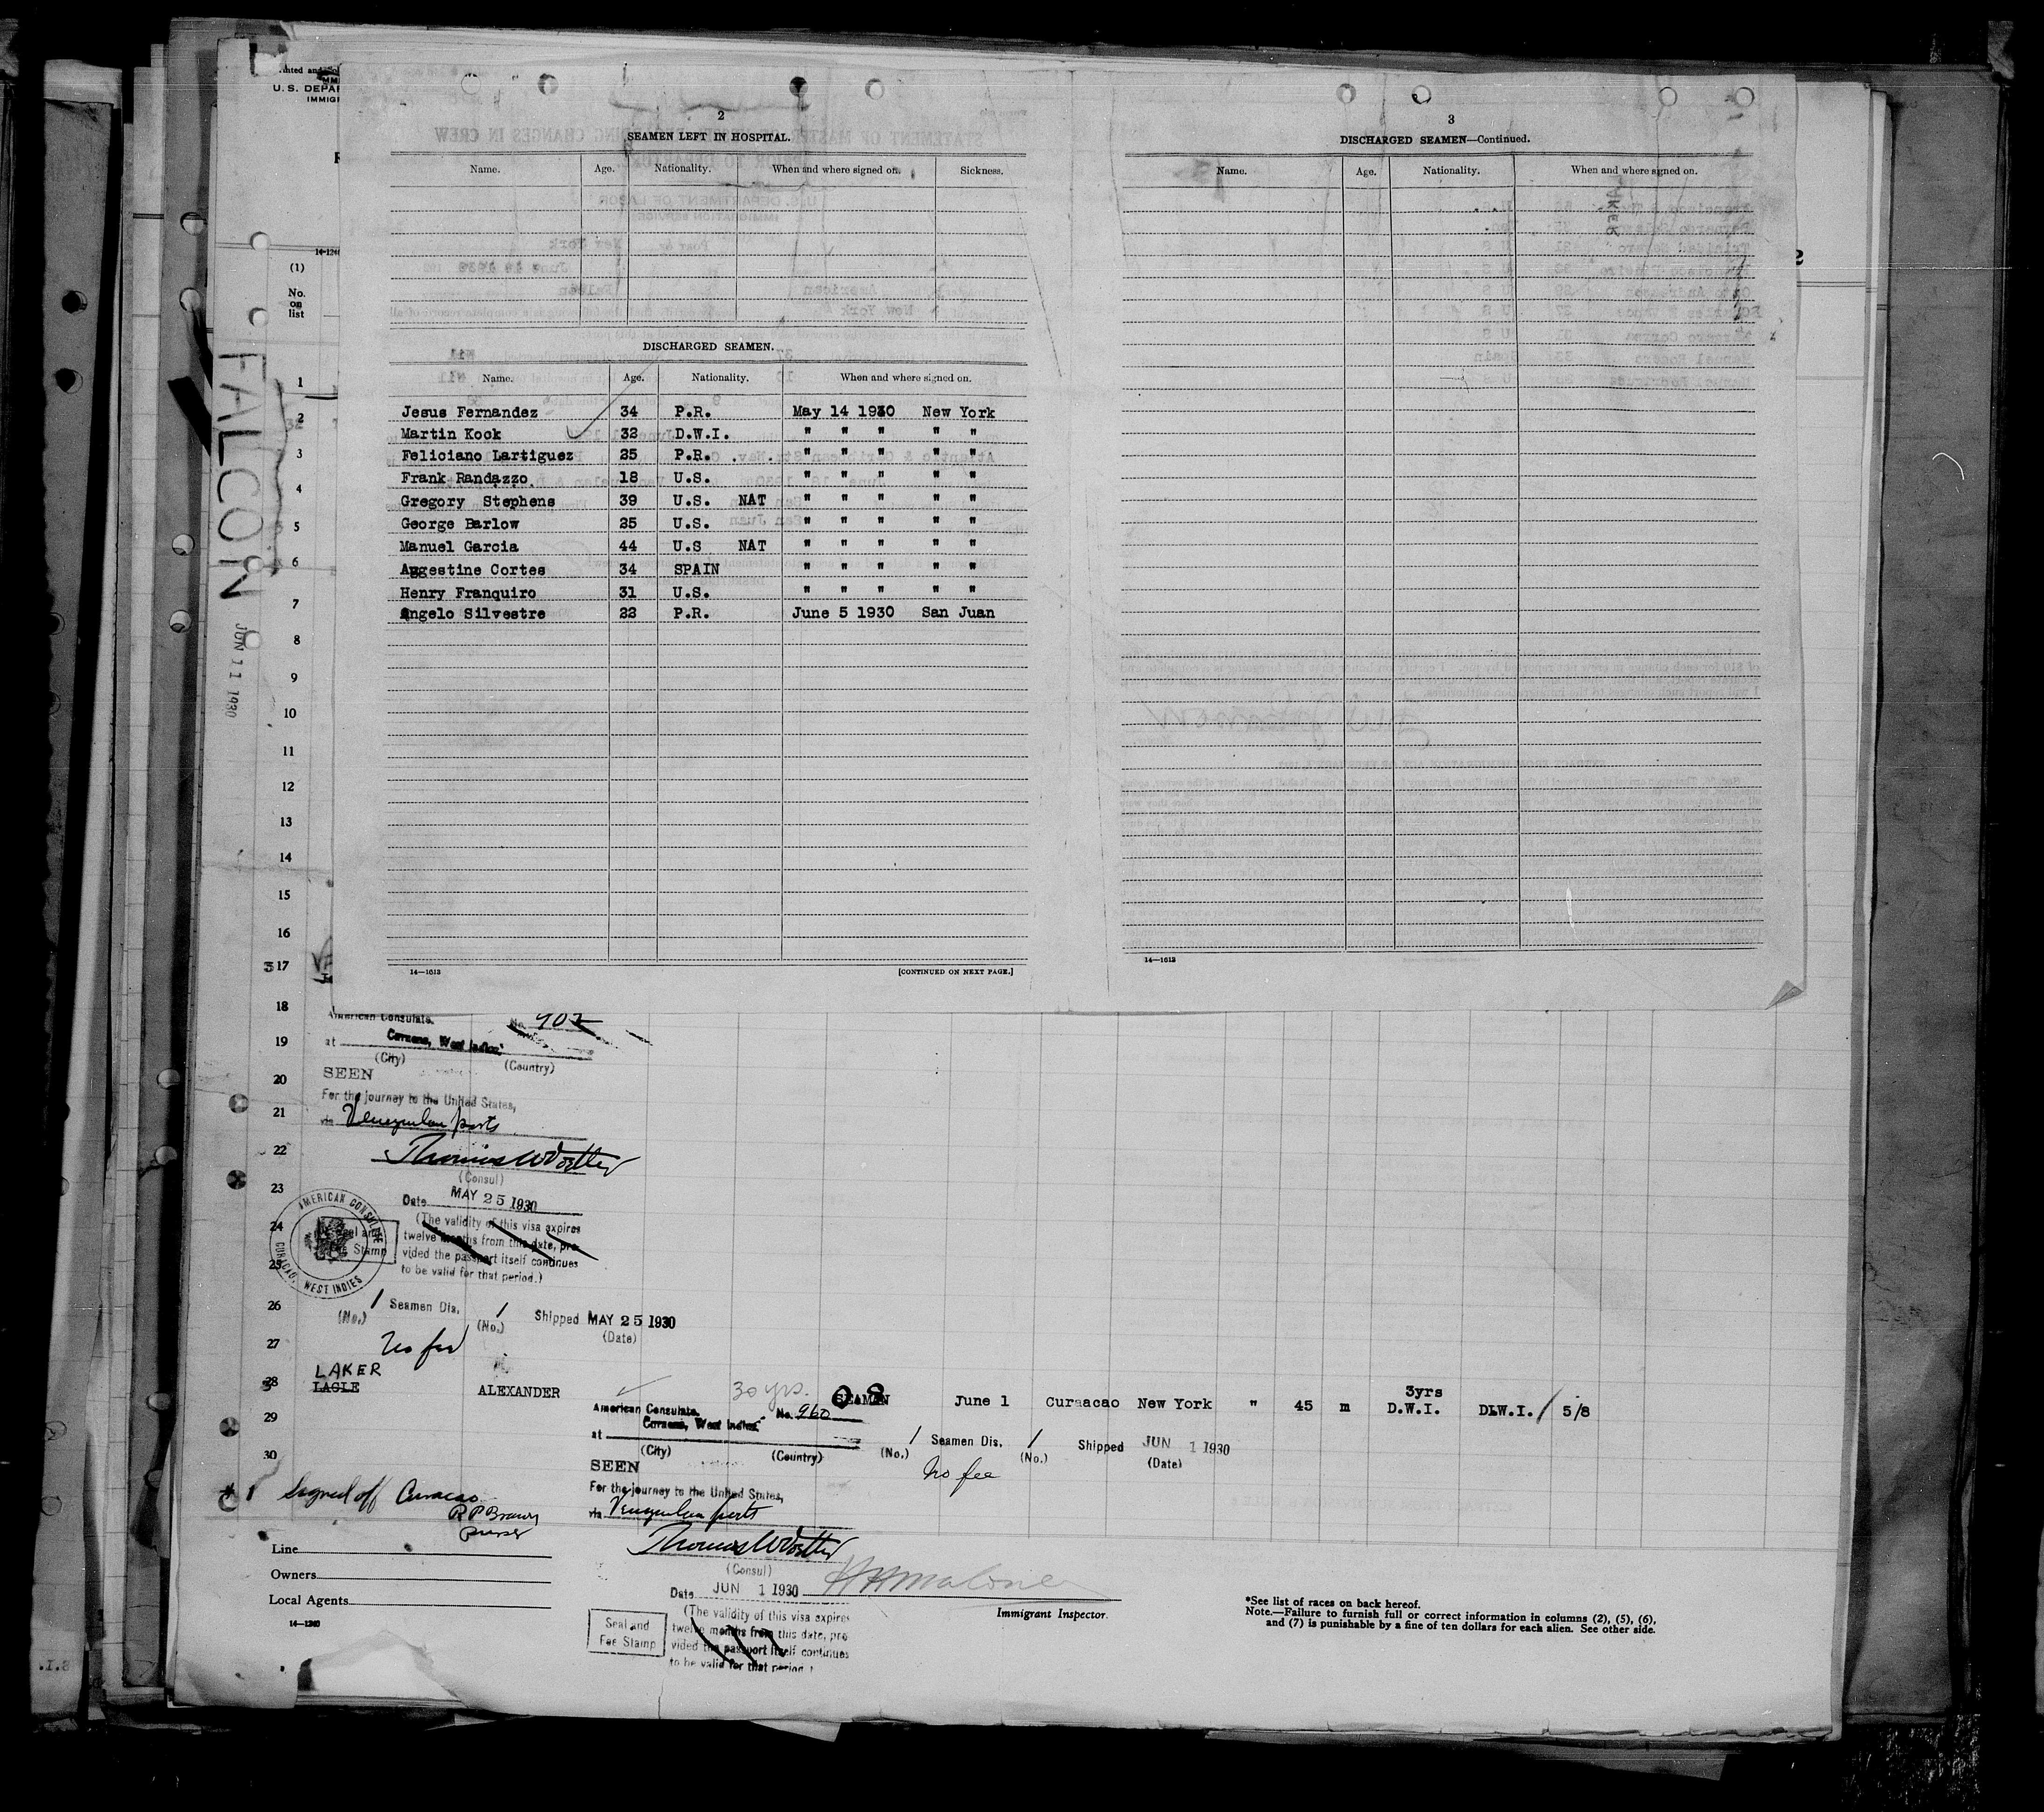 U.S. DEPAR
IMMIG
(1)
No.
on
list
FALCON
JUN 11 1930
2
SEAMEN LEFT IN HOSPITAL.
Name. Age. Nationality. When and where signed on. Sickness.
DISCHARGED SEAMEN.
Name. Age. Nationality. When and where signed on.
Jesus Fernandez 34 P.R. May 14 1930 New York
Martin Kock 32 D.W.I. " " " " "
Feliciano Lartiguez 25 P.R. " " " " "
Frank Randazzo 18 U.S. " " " " "
Gregory Stephens 39 U.S. NAT " " " " "
George Barlow 25 U.S. " " " " "
Manuel Garcia 44 U.S NAT " " " " "
Augestine Cortes 34 SPAIN " " " " "
Henry Franquiro 31 U.S. " " " " "
Angelo Silvestre 22 P.R. June 5 1930 San Juan
14—1613 [CONTINUED ON NEXT PAGE.]
3
DISCHARGED SEAMEN—Continued.
Name. Age. Nationality. When and where signed on.
14—1613
2
1
2
3
4
5
6
7
8
9
10
11
12
13
14
15
16
17
18
19
20
21
22
23
24
25
26
27
28
29
30
American Consulate.
at Curacao, West Indies.
(City) (Country)
SEEN
For the journey to the United States,
via Venezuelan ports
(Consul)
Date MAY 25 1930
(The validity of this visa expires
twelve months from this date, pro
vided the passport itself continues
to be valid for that period.)
AMERICAN CONSULATE
CURACAO, WEST INDIES
1 Seamen Dis. 1 Shipped MAY 25 1930
(No.) (No.) (Date)
No fee
LAKER
LAGLE ALEXANDER 30 yrs. SEAMAN June 1 Curaacao New York " 45 m 3yrs D.W.I. D.W.I. 5/8
American Consulate. No. 960
at Curacao, West Indies.
(City) (Country)
1 Seamen Dis. 1 Shipped JUN 1 1930
(No.) (No.) (Date)
No fee
SEEN
For the journey to the United States,
via Venezuelan ports
(Consul)
Date JUN 1 1930
(The validity of this visa expires
twelve months from this date, pro
vided the passport itself continues
to be valid for that period.)
Seal and
Fee Stamp
Signed off Curacao
R P Brown
purser
Line
Owners
Local Agents
14—1240
Immigrant Inspector.
*See list of races on back hereof.
Note.—Failure to furnish full or correct information in columns (2), (5), (6),
and (7) is punishable by a fine of ten dollars for each alien. See other side.